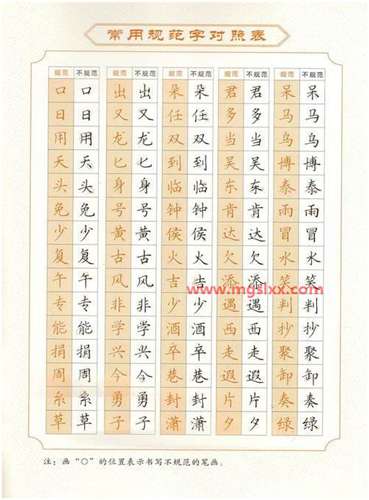 常用规范字对照表
规范 不规范 规范 不规范 规范 不规范 规范 不规范 规范 不规范
口 口 出 出 朵 朵 君 君 呆 呆
日 日 又 又 任 任 多 多 马 马
用 用 龙 龙 双 双 当 当 乌 乌
天 天 匕 匕 到 到 吴 吴 博 博
头 头 身 身 临 临 东 东 泰 泰
免 免 号 号 钟 钟 肯 肯 雨 雨
少 少 黄 黄 侯 侯 达 达 冒 冒
复 复 古 古 火 火 欠 欠 水 水
午 午 风 风 吉 吉 添 添 笑 笑
www.mgslxx.com
专 专 非 非 少 少 遇 遇 判 判
能 能 学 学 酒 酒 西 西 抄 抄
捐 捐 兴 兴 卒 卒 走 走 聚 聚
周 周 今 今 巷 巷 遐 遐 卸 卸
系 系 勇 勇 封 封 片 片 奏 奏
草 草 子 子 潇 潇 夕 夕 绿 绿
注：画“○”的位置表示书写不规范的笔画。